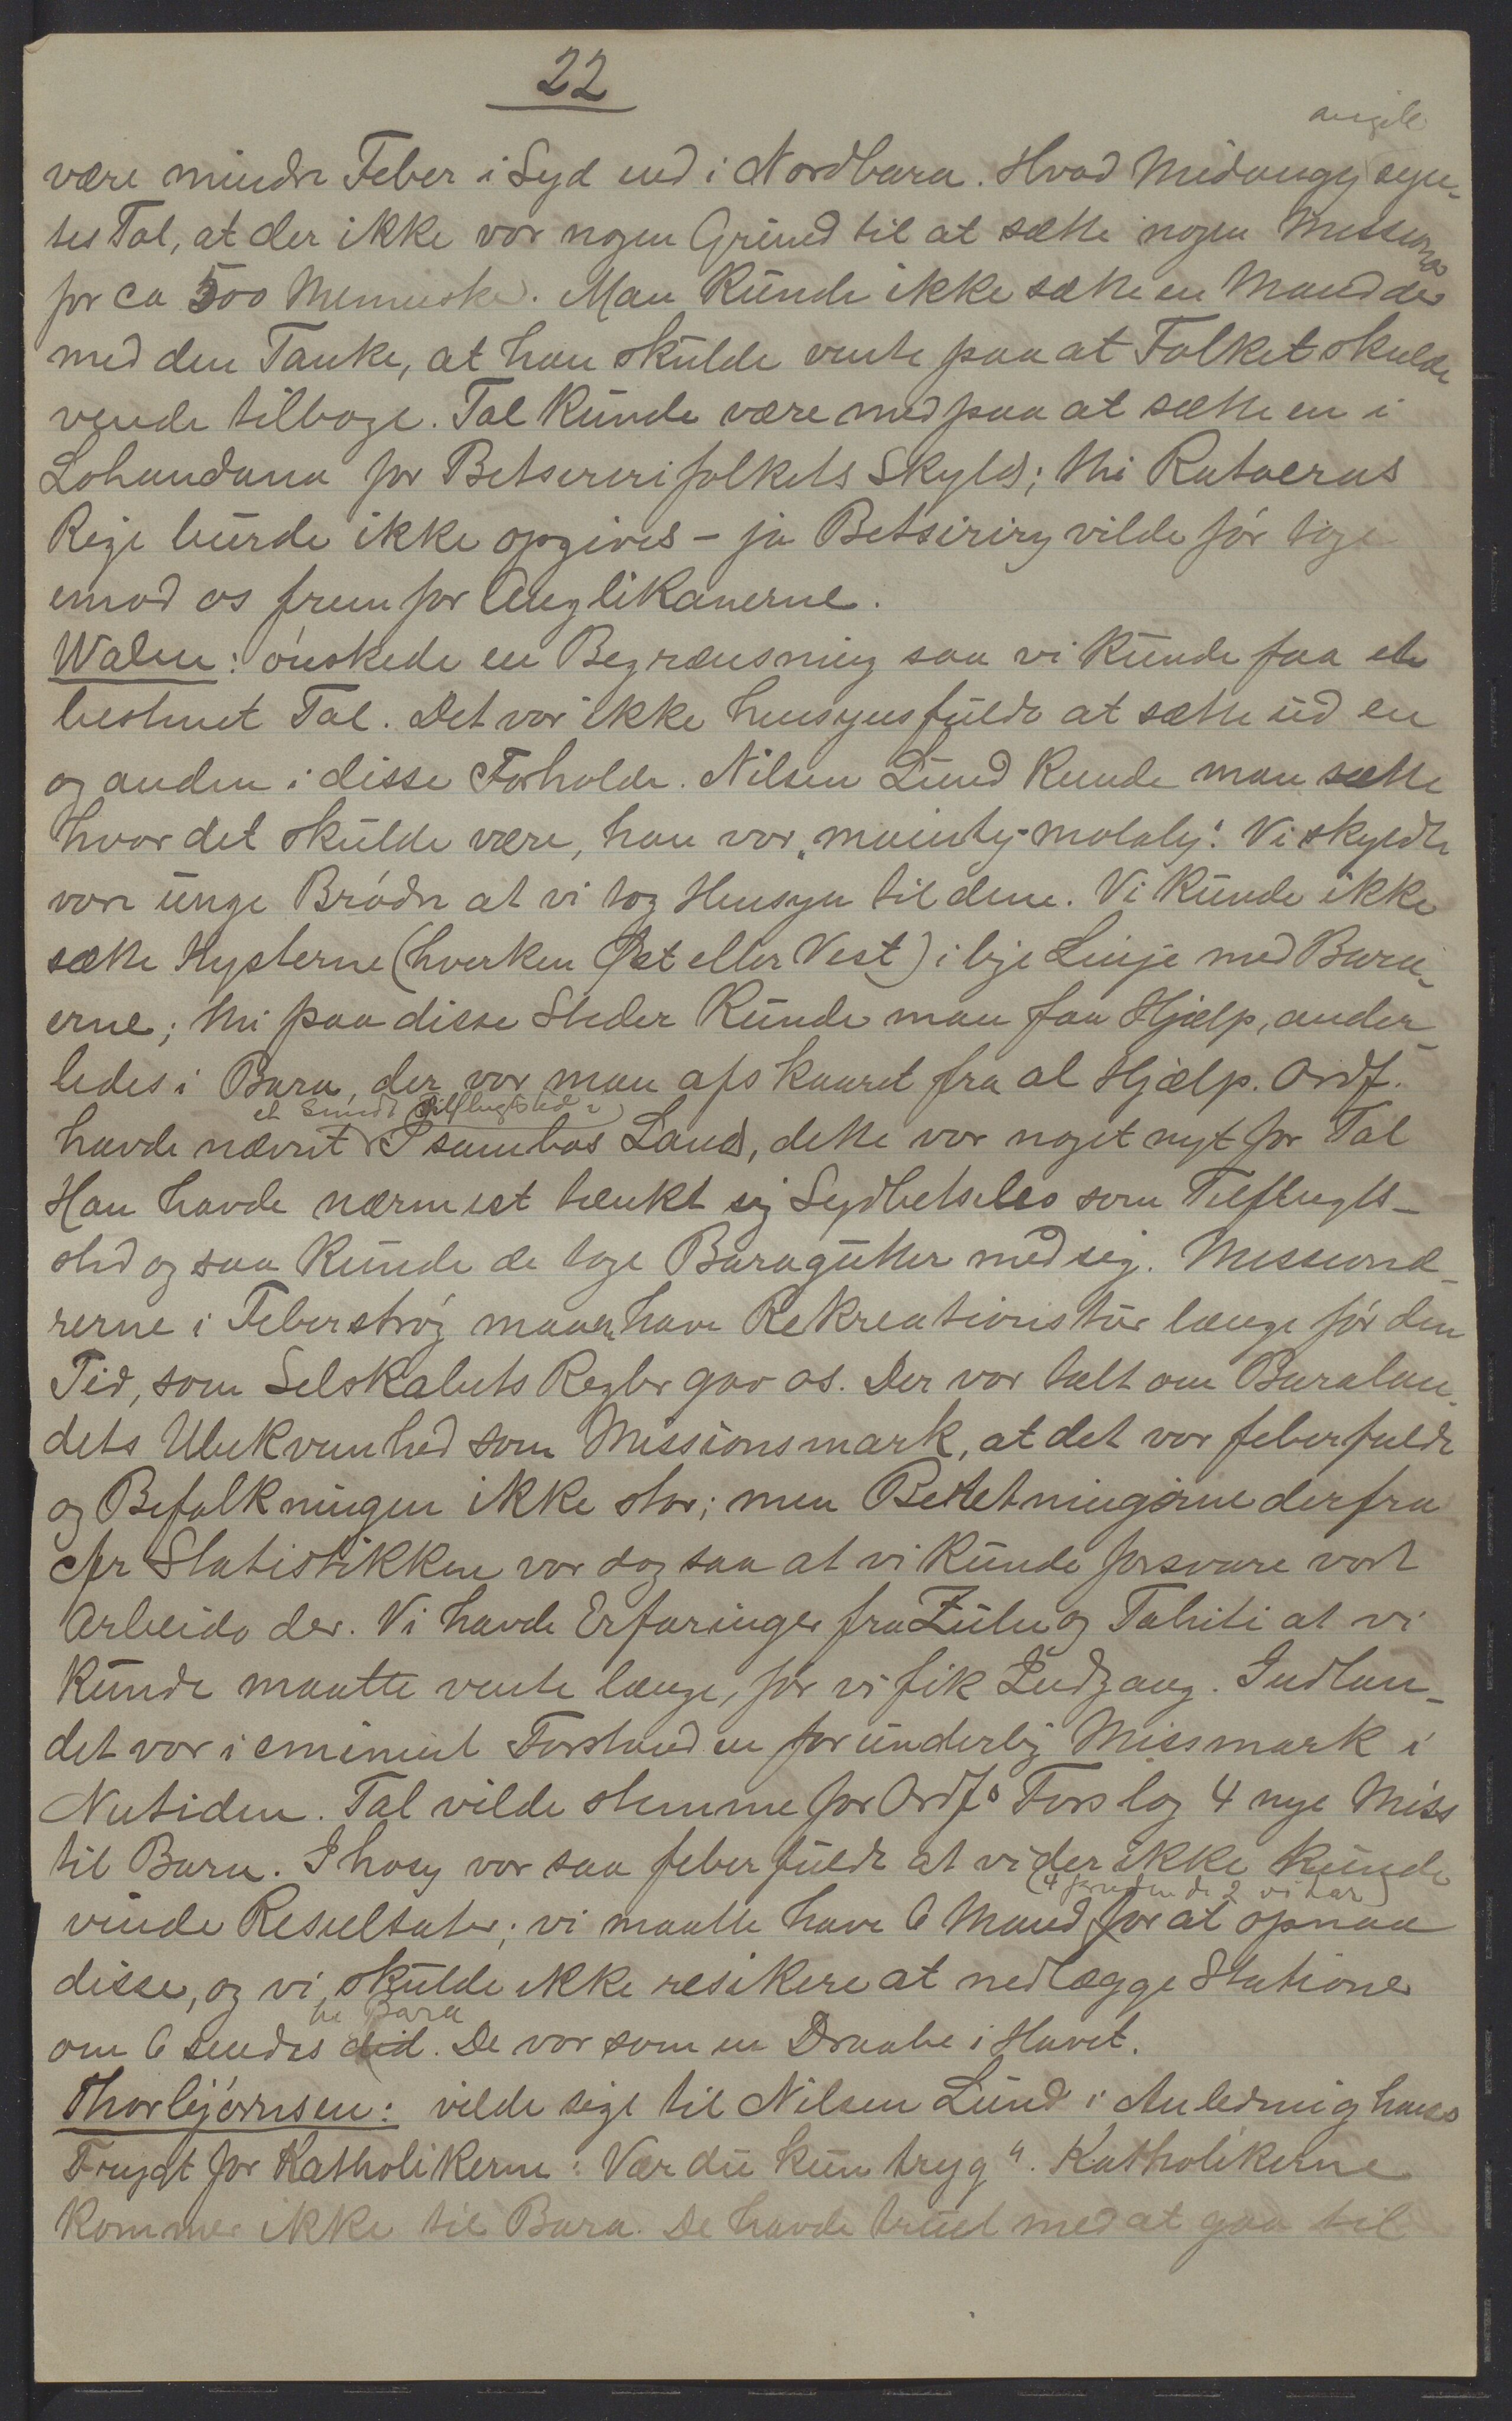 22
angik
være mindre Feber i Syd end i Nordbara. Hvad Midongy syn-
tes Tal, at der ikke var nogen Grund til at sætte nogen Missionær
for ca 500 Menneske. Man kunde ikke sætte en Mand der
med den Tanke, at han skulde vente paa at Folket skulde
vende tilbage. Tal kunde være med paa at sætte en i
Lohandana for Betsirerifolkets Skyld; thi Ratoeras
Rige burde ikke opgives - ja Betsiriry vilde før tage
emod os frem for Anglikanerne.
Walen: ønskede en Begrænsning saa vi kunde faa et
bestemt Tal. Det var ikke hensynsfuldt at sætte ud en
og anden i disse Forholde. Nilsen Lund kunde man sætte
hvor det skulde være, han var "mainty molaly". Vi skyldte
vore unge Brødre at vi tog Hensyn til dem. Vi kunde ikke
sætte Kysterne (hverken Øst eller Vest) i lige Linje med Bara-
erne; thi paa disse Steder kunde man faa Hjælp, ander-
ledes i Bara, der var man afskaaret fra al Hjælp. Ordf.
et sundt Tilflugtsted i
havde nævnt Isambos Land, dette var noget nyt for Tal
Han havde nærmest tænkt sig Sydbetsileo som Tilflugts-
sted og saa kunde de tage Baragutter med sig. Missionæ-
rerne i Feberstrøg maa have Rekreationstur længe før den
Tid, som Selskabets Regler gav os. Der var talt om Baralan-
dets Ubekvemhed som Missionsmark, at det var feberfuldt
og Befolkningen ikke stor; men Beretningerne derfra
cfr Statistikken var dog saa at vi kunde forsvare vort
Arbeide der. Vi havde Erfaringer fra Zulu og Tahiti at vi
kunde maatte vente længe, før vi fik Indgang. Indlan-
det var i eminent Forstand en forunderlig Missmark i
Nutiden. Tal vilde stemme for Ordfs Forslag 4 nye Miss
til Bara. Ihosy var saa feberfuldt at vi der ikke kunde
(4 foruden de 2 vi har)
vinde Resultater; vi maatte have 6 Mand for at opnaa
disse, og vi skulde ikke resikere at nedlægge Stationer
til Bara
om 6 sendes did. De var som en Draabe i Havet.
Thorbjørnsen: vilde sige til Nilsen Lund i Anledning hans
Frygt for Katholikerne: Vær du kun tryg". Katholikerne
kommer ikke til Bara. De havde truet med at gaa til